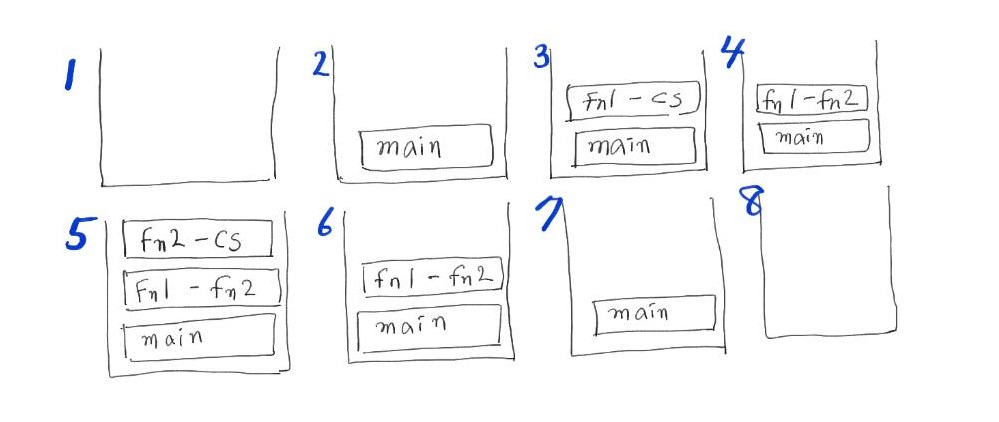 1
2
main
3
Fn1 - CS
main
4
fn1-fn2
main
5
fn2-CS
Fn1 - fn2
main
6
fn1 - fn2
main
7
main
8